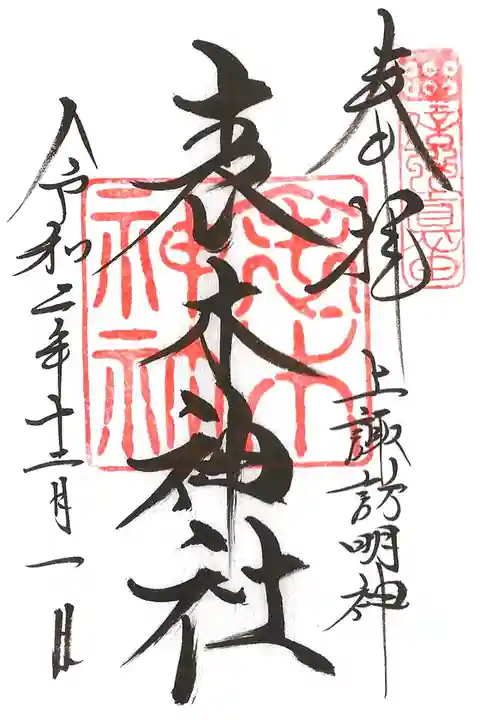 奉拝
上諏訪明神
表木神社
令和二年十二月一日
神社